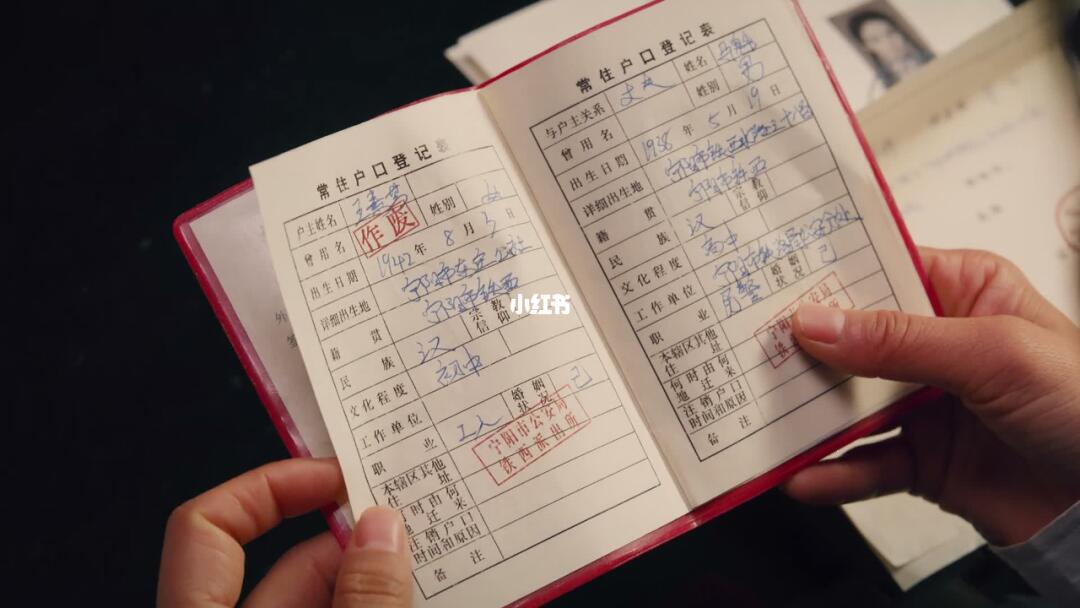 常住户口登记表
户主姓名 作废 性别 女
曾用名
出生日期 1942 年 8 月 3 日
详细出生地 宁阳市东
籍贯 宁阳市铁西 宗教信仰
民族 汉
文化程度 初中
工作单位 婚姻状况 已
职业 工人
宁阳市公安局
铁西派出所
本辖区其他住址
何时由何地迁来
注销户口时间和原因
备注
常住户口登记表
与户主关系 丈夫 姓名
曾用名 性别 男
出生日期 1938 年 5 月 19 日
详细出生地 宁阳市铁西
籍贯 宁阳市铁西 宗教信仰
民族 汉
文化程度 高中
工作单位 宁阳市 公安处 婚姻状况 已
职业
宁阳市公安局
铁西派出所
本辖区其他住址
何时由何地迁来
注销户口时间和原因
备注
小红书